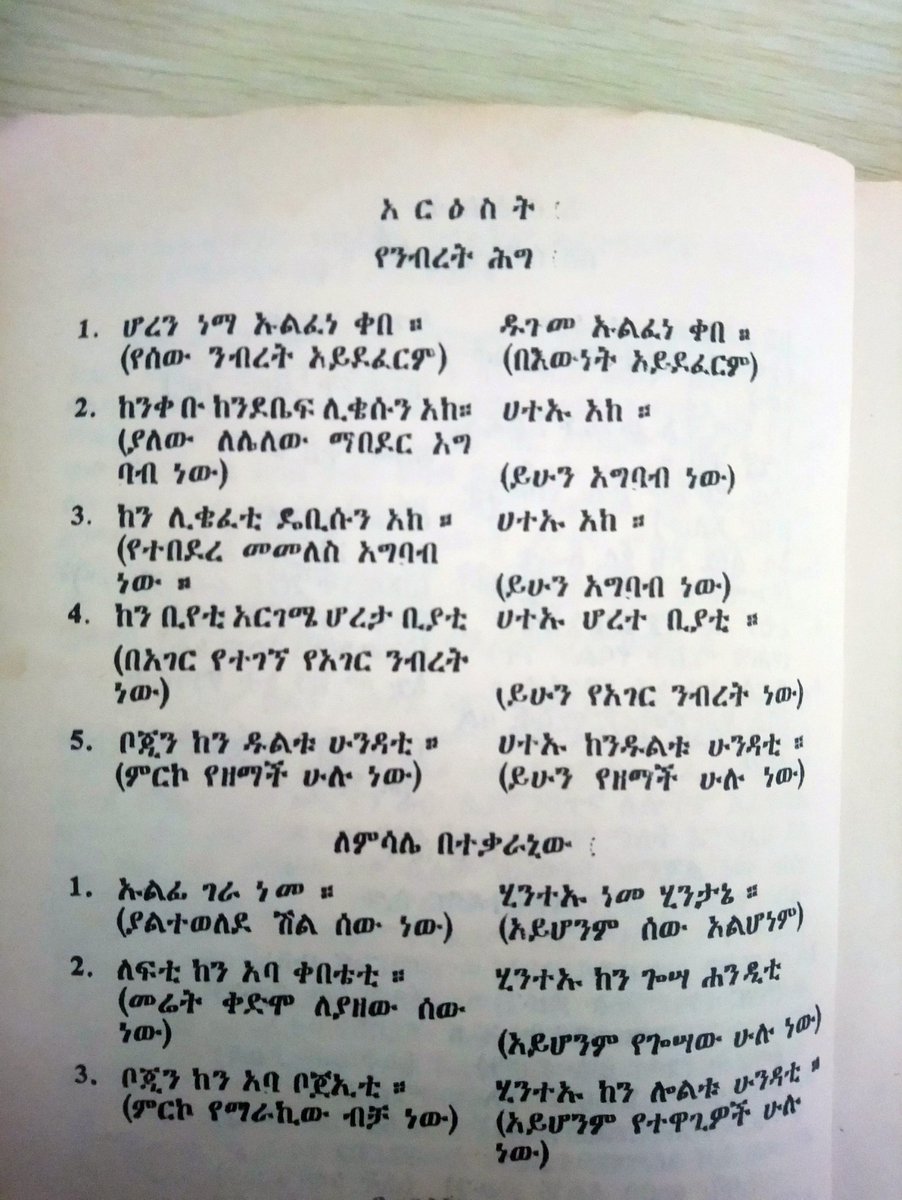 አርዕስት
የንብረት ሕግ
1. ሆረን ነማ ኡልፈነ ቀበ ። ዱጉመ ኡልፈነ ቀበ ።
(የሰው ንብረት አይደፈርም) (በእውነት አይደፈርም)
2. ከንቀቡ ከንደቤፍ ሊቄሱን አከ። ሀተኡ አከ ።
(ያለው ለሌለው ማበደር አግ
ባብ ነው) (ይሁን አግባብ ነው)
3. ከን ሊቄፈቲ ዴቢሱን አከ ። ሀተኡ አከ ።
(የተበደረ መመለስ አግባብ
ነው ። (ይሁን አግባብ ነው)
4. ከን ቢየቲ አርገሜ ሆረታ ቢያቲ ሀተኡ ሆረተ ቢያቲ ።
(በአገር የተገኘ የአገር ንብረት
ነው) (ይሁን የአገር ንብረት ነው)
5. ቦጂን ከን ዱልቱ ሁንዳቲ ። ሀተኡ ከንዱልቱ ሁንዳቲ ።
(ምርኮ የዘማች ሁሉ ነው) (ይሁን የዘማች ሁሉ ነው)
ለምሳሌ በተቃራኒው
1. ኡልፊ ገራ ነመ ። ሂንተኡ ነመ ሂንታኔ ።
(ያልተወለደ ሽል ሰው ነው) (አይሆንም ሰው አልሆነም)
2. ለፍቲ ከን አባ ቀበቴቲ ። ሂንተኡ ከን ጐሣ ሐንዲቲ
(መሬት ቀድሞ ለያዘው ሰው
ነው) (አይሆንም የጐሣው ሁሉ ነው)
3. ቦጂን ከን አባ ቦጀኢቲ ። ሂንተኡ ከን ሎልቱ ሁንዳቲ ።
(ምርኮ የማራኪው ብቻ ነው) (አይሆንም የተዋጊዎች ሁሉ
ነው)